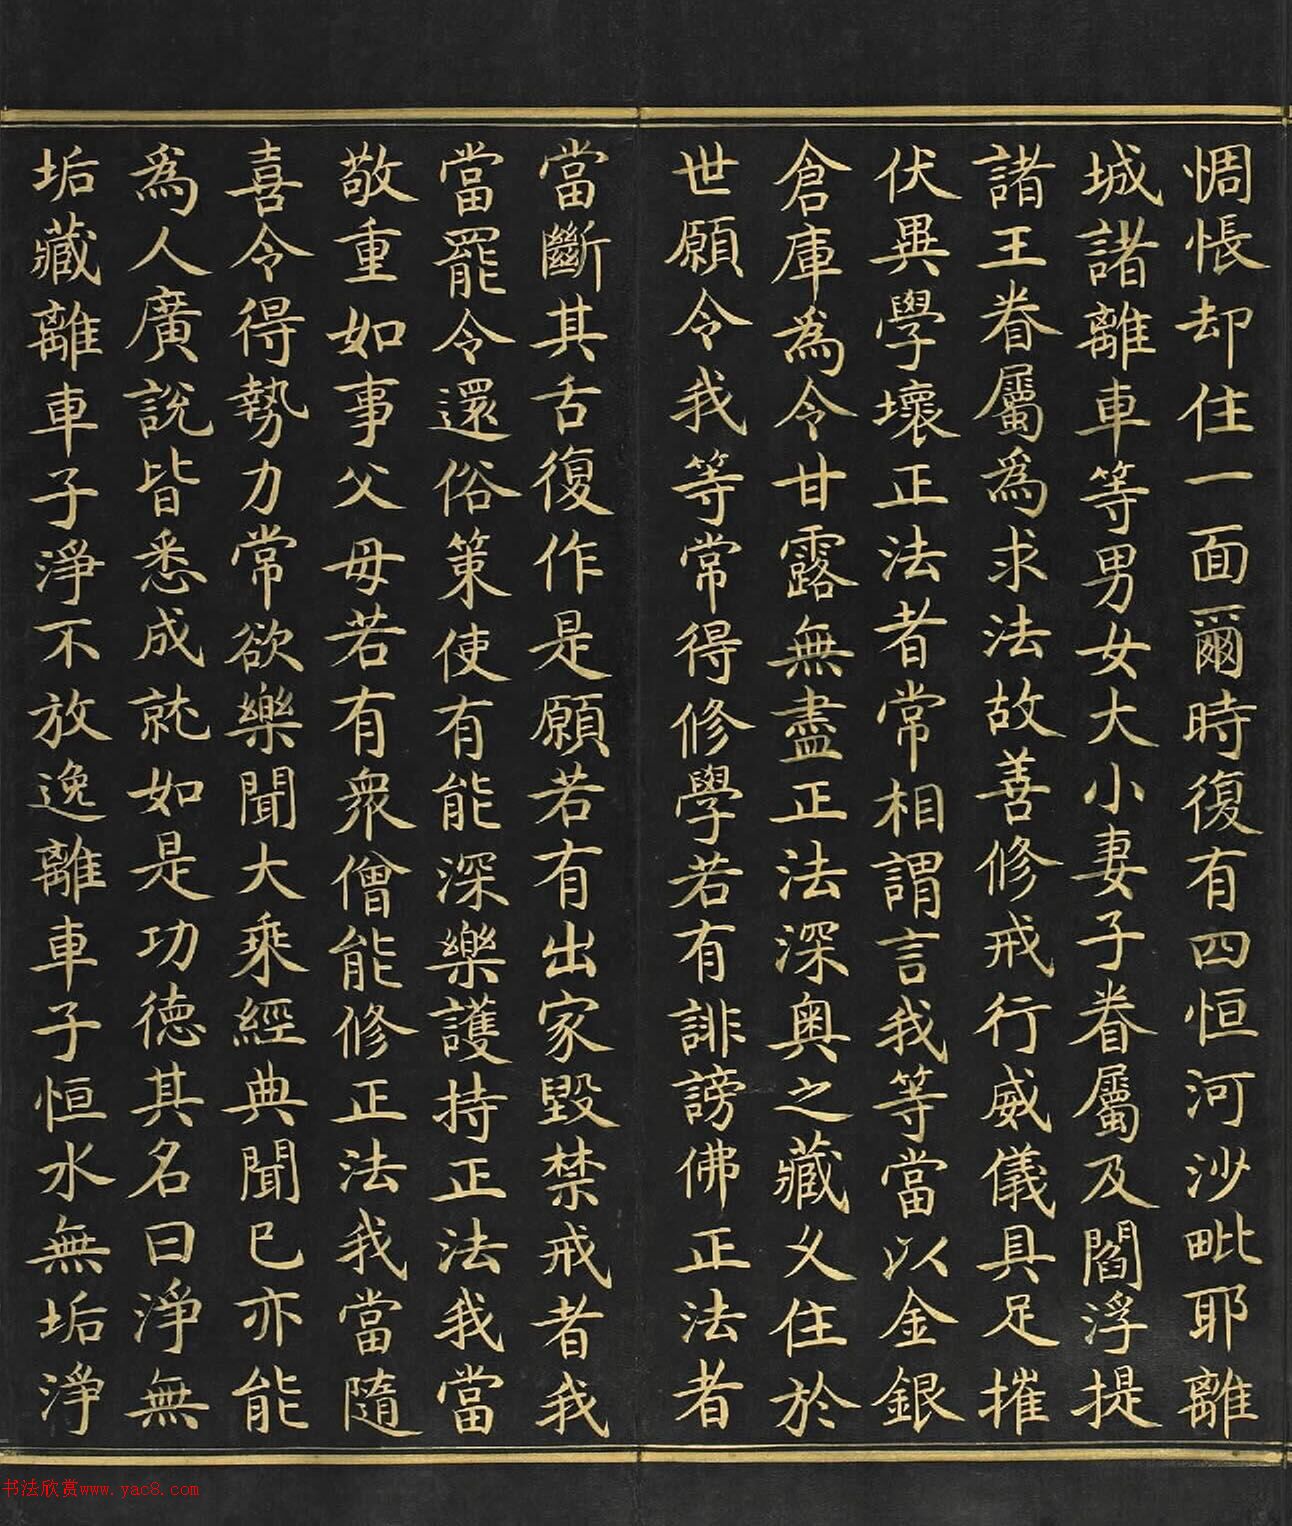 惆悵却住一面爾時復有四恒河沙毗耶離
城諸離車等男女大小妻子眷屬及閻浮提
諸王眷屬為求法故善修戒行威儀具足摧
伏異學壞正法者常相謂言我等當以金銀
倉庫為令甘露無盡正法深奧之藏久住於
世願令我等常得修學若有誹謗佛正法者
當斷其舌復作是願若有出家毀禁戒者我
當罷令還俗策使有能深樂護持正法我當
敬重如事父母若有衆僧能修正法我當隨
喜令得勢力常欲樂聞大乘經典聞已亦能
為人廣說皆悉成就如是功德其名曰淨無
垢藏離車子淨不放逸離車子恒水無垢淨
书法欣赏www.yac8.com